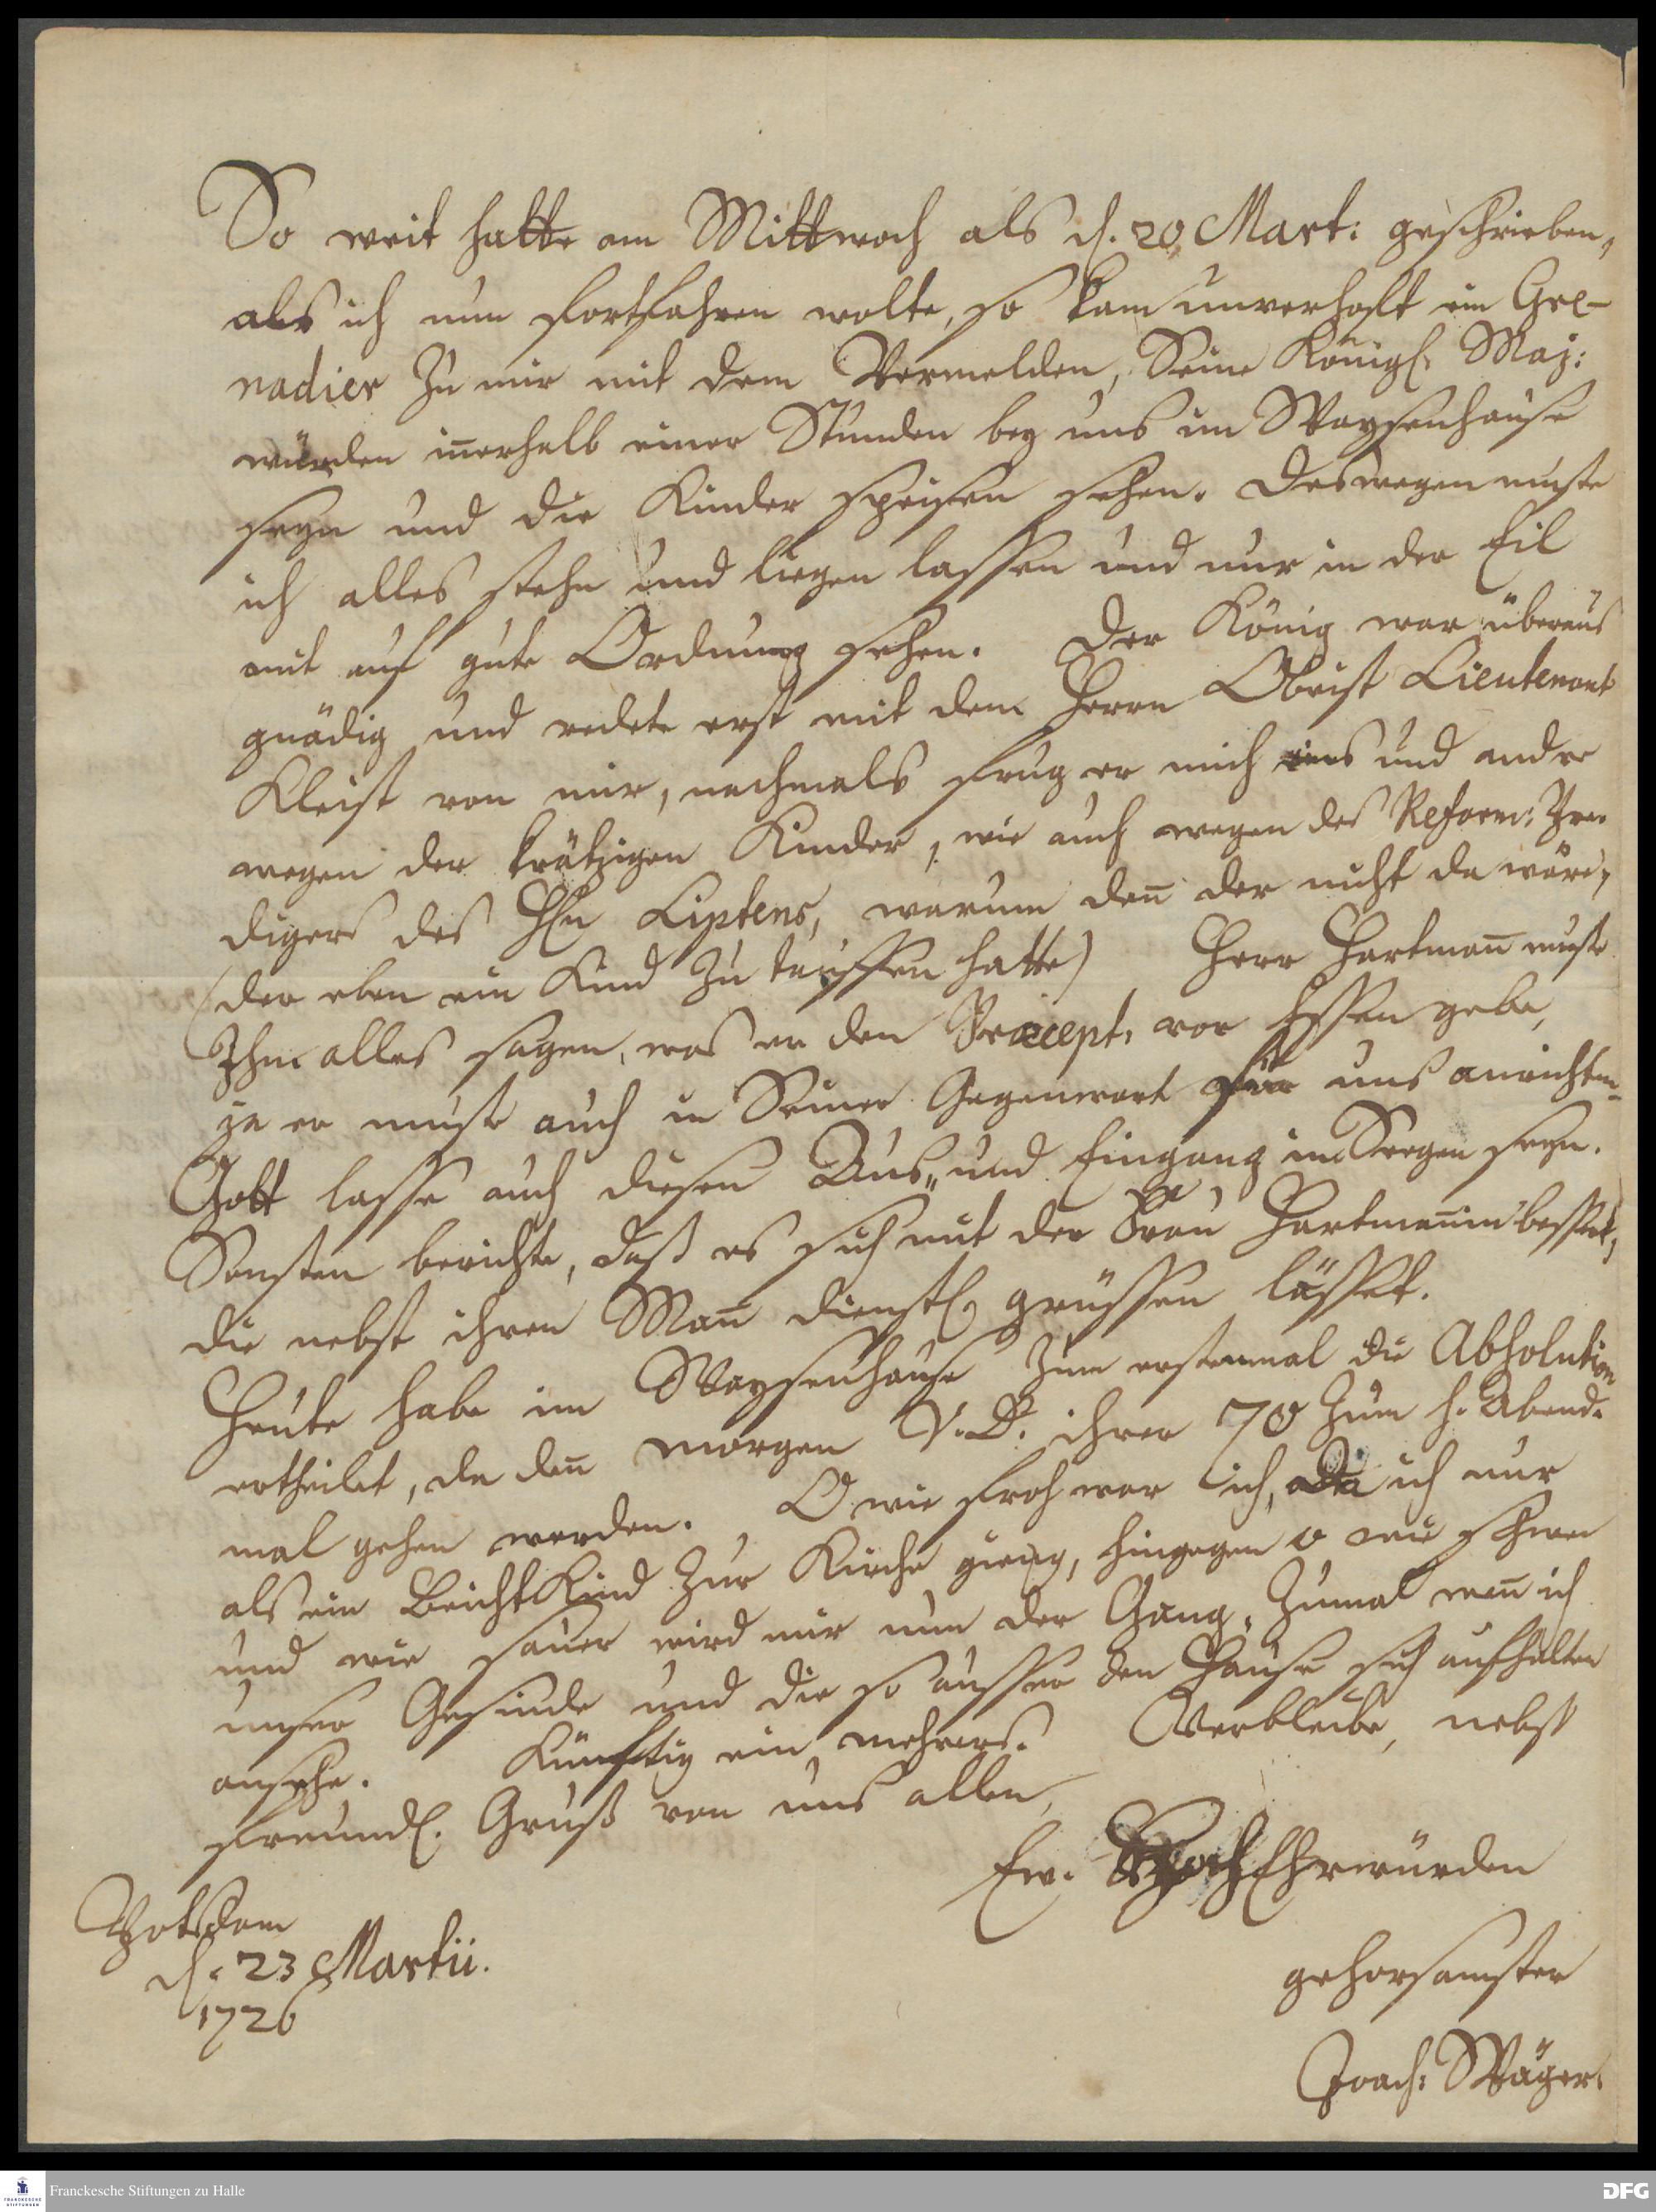 So weit hatte am Mittwoch als d. 20 Mart: geschrieben,
als ich nun fortfahren wolte, so kam unverhofft ein Gre-
nadier zu mir mit dem Vermelden, Seine Königl. Maj:
würden in̄erhalb einer Stunden bey uns im Waysenhause
seyn und die Kinder speisen sehen. Deswegen muste
ich alles stehn und liegen lassen und nur in der Eil
mit auf gute Ordnung sehen. Der König war überaus
gnädig und redete erst mit dem Herrn Obrist Lieutenant
Kleist von mir, nachmals frug er mich eins und andre
wegen der krätzigen Kinder, wie auch wegen des Reform: Pre-
digers des Hln Liptens, warum den̄ der nicht da wäre,
(der eben ein Kind zu tauffen hatte) Herr Hartman̄ muste
Ihm alles sagen, was er den Præcept. vor Essen gebe,
ja er muste auch in Seiner Gegenwart für uns anrichten.
Gott lasse auch diesen Aus- und Eingang im Seegen seyn.
Sonsten berichte, daß es sich mit der Frau Hartman̄in bessert,
die nebst ihren Man̄ dienstl. grüssen lässet.
Heute habe im Waysenhause zum erstenmal die Absolution
ertheilet, da den̄ morgen V. D. ihrer 70 zum h. Abend-
mal gehen werden. O wie froh war ich, da ich nur
als ein BeichtKind zur Kirche gieng, hingegen o wie schwer
und wie sauer wird mir nun der Gang, zumal wen̄ ich
unser Gesinde und die so ausser den Hause sich aufhalten
ansehe. Künfftig ein mehrers. Verbleibe, nebst
freundl. Gruß von uns allen,
Ew. HochEhrwürden
Potsdam
d. 23 Martii.
1726
gehorsamster
Joach: Wäger.
Franckesche Stiftungen zu Halle
FRANCKESCHE STIFTUNGEN
DFG